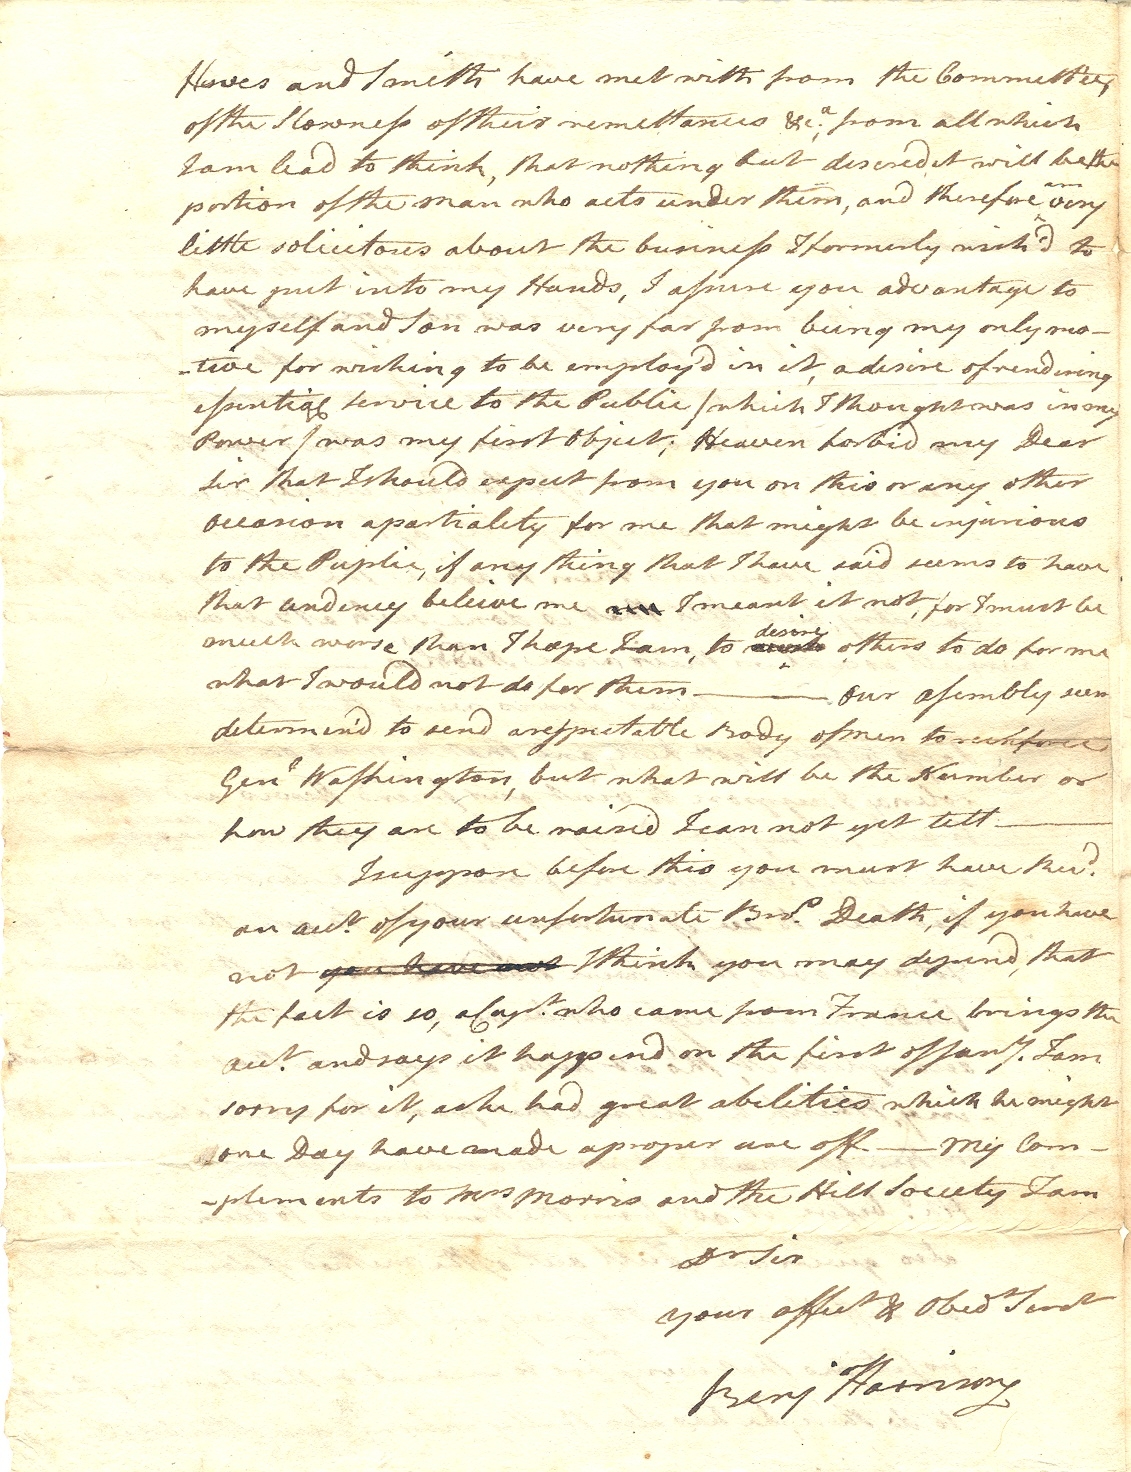 Hewes and Smith have met with from the Committee,
of the Slowness of their remettances &c.a, from all which
I am lead to think, that nothing but discredit will be the
portion of the man who acts under them, and therefore am very
little solicitous about the business I formerly wish'd to
have put into my Hands, I assure you advantage to
myself and Son was very far from being my only mo-
-tive for wishing to be employ'd in it, a desire of rendering
essential service to the Public / which I thought was in my
Power / was my first Object; Heaven forbid my Dear
Sir that I should expect from you on this or any other
occasion a partiality for me that might be injurious
to the Puplic, if any thing that I have said seems to have
that tendency beleive me I meant it not, for I must be
much worse than I hope I am, to desire others to do for me
what I would not do for them ——— Our assembly seem
determin'd to send a respectable Body of Men to reinforce
Genl Washington, but what will be the Number or
how they are to be raised I can not yet tell ———
I suppose before this you must have Recd.
an acct. of your unfortunate Bros. Death, if you have
not you have not I think you may depend, that
the fact is so, a Capt. who came from France brings the
acct. and says it happend on the first of Jany. I am
sorry for it, as he had great abilities which he might
one Day have made a proper use off — My Com-
-plements to Mrs Morris and the Hill Society I am
Dr Sir
your affect & Obedt Servt
Benj Harrison